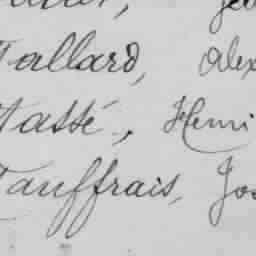 Tallard, Alex
Tassé, Henri
Tauffrais, Jos